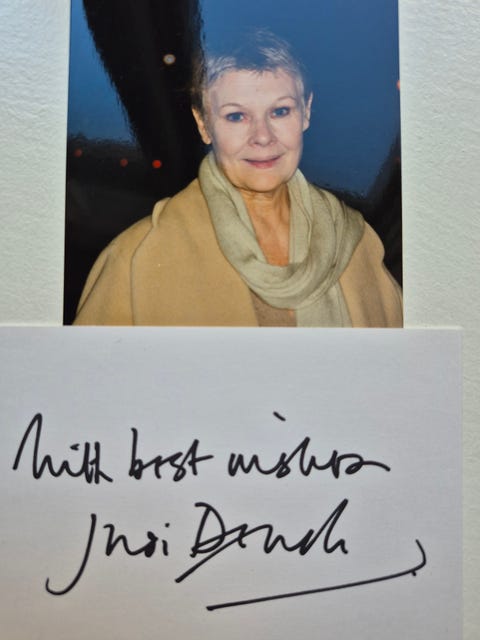 With best wishes
Judi Dench